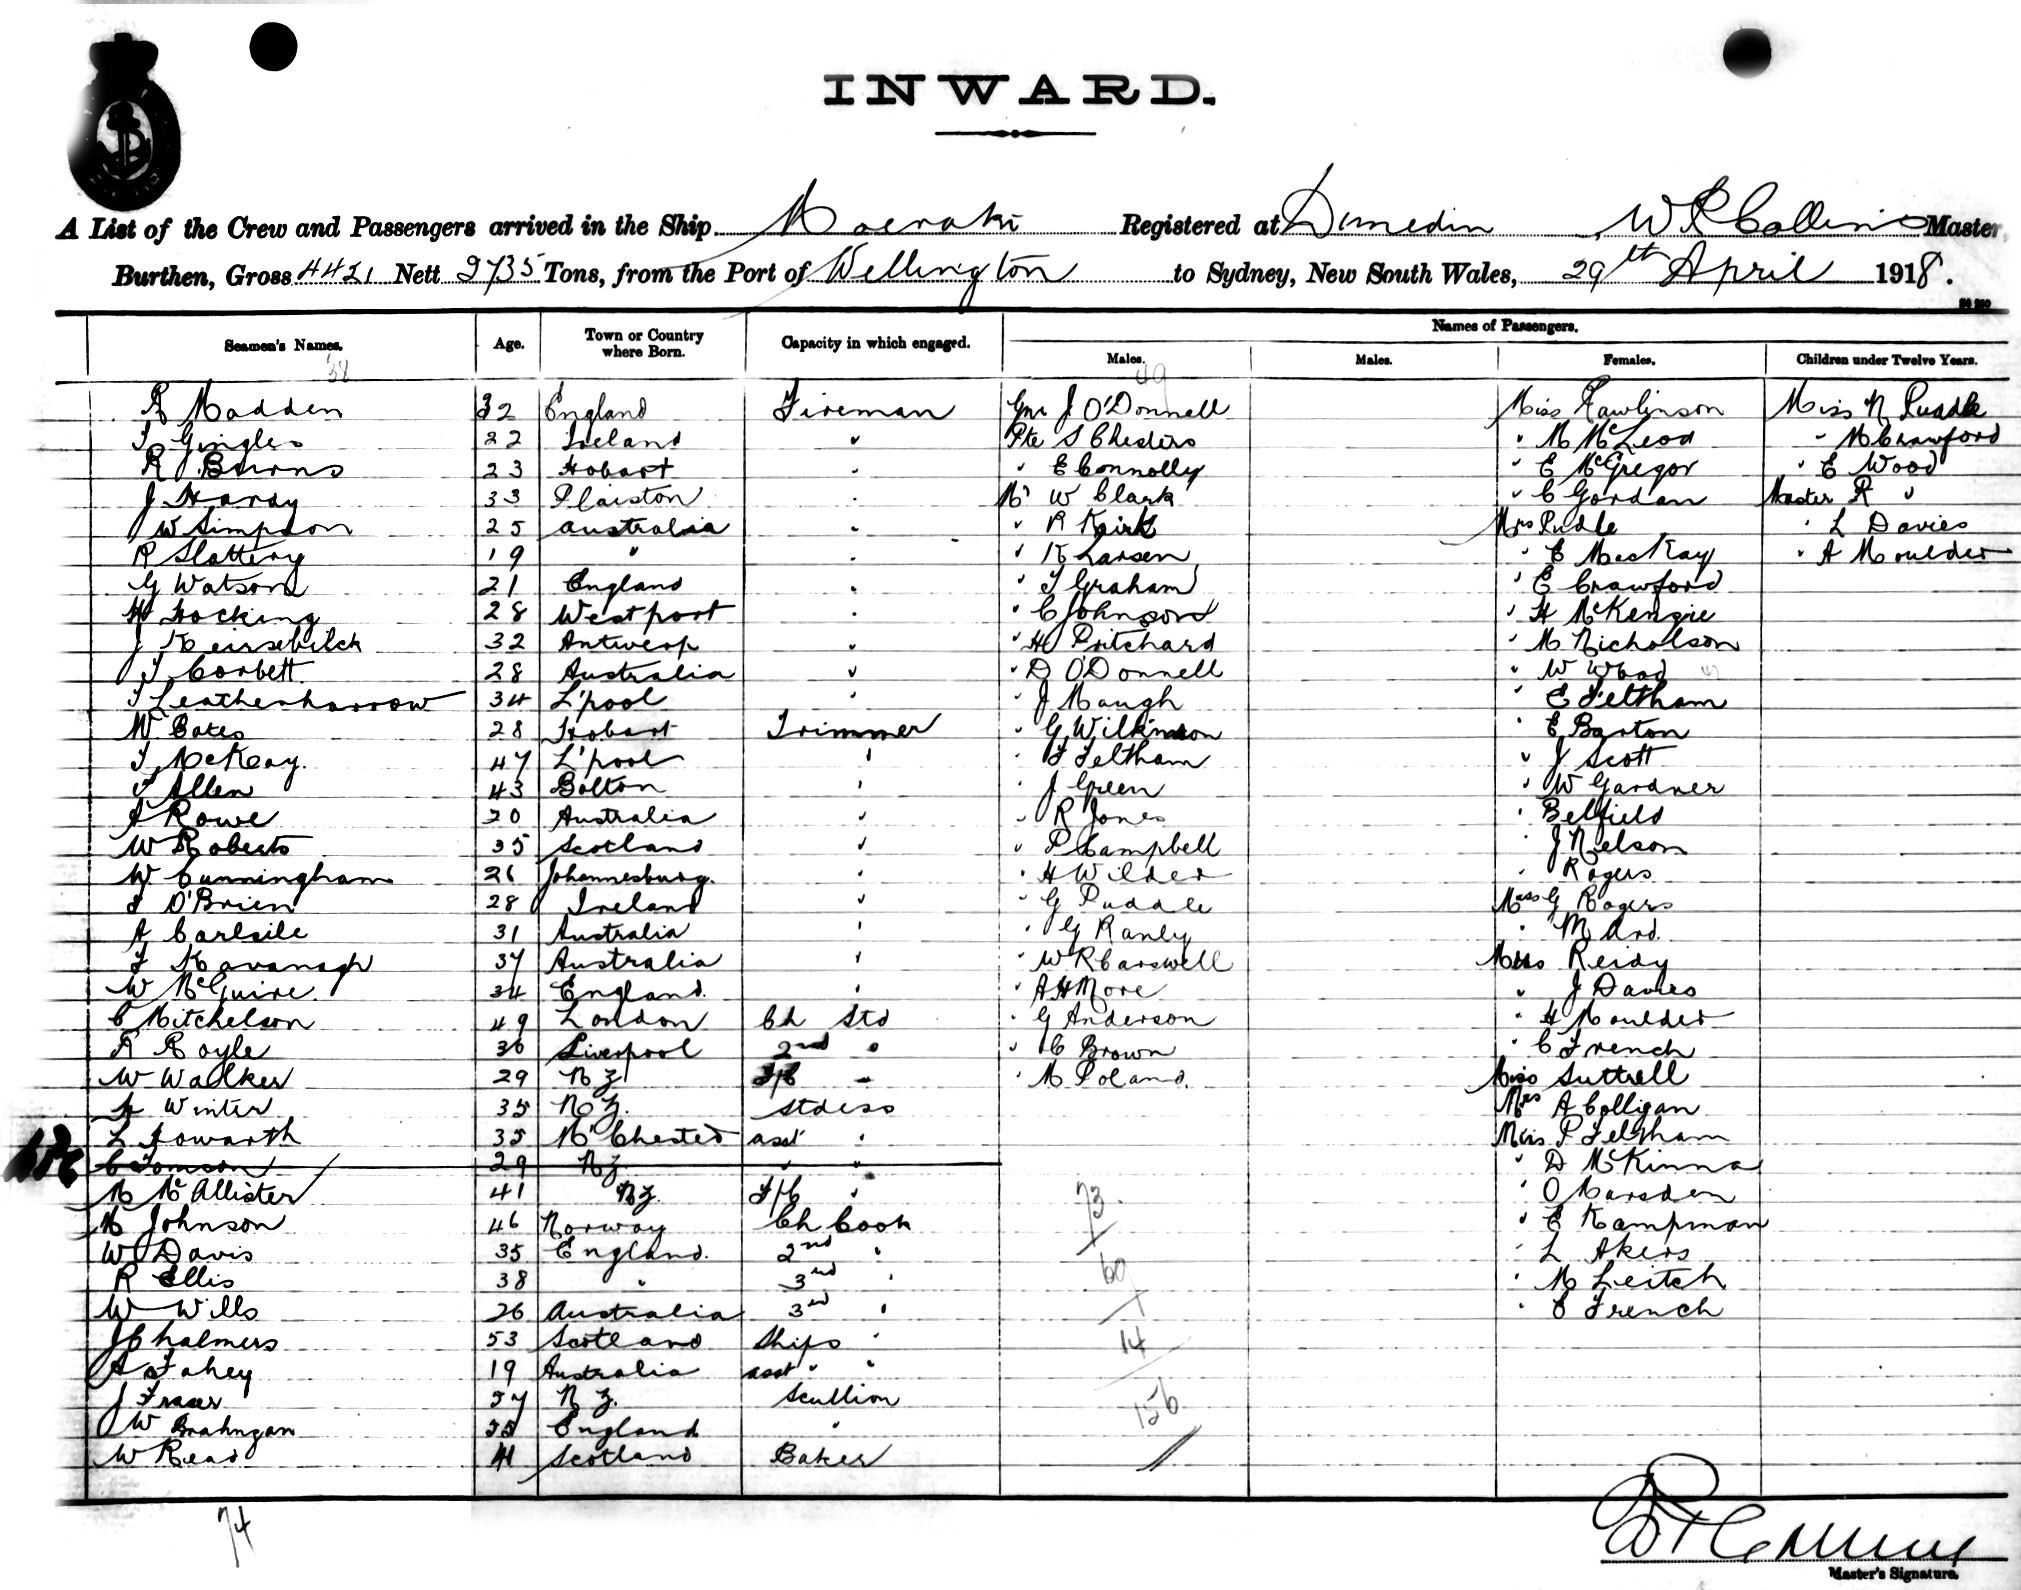 INWARD.
A List of the Crew and Passengers arrived in the Ship Moeraki Registered at Dunedin W R Collins Master,
Burthen, Gross 4421 Nett 2735 Tons, from the Port of Wellington to Sydney, New South Wales, 29th April 1918.
Names of Passengers.
Seamen's Names. Age. Town or Country where Born. Capacity in which engaged. Males. Males. Females. Children under Twelve Years.
38 49
R Madden 32 England Fireman Gnr J O'Donnell Miss Rawlinson Miss N Puddle
T Gingles 22 Ireland " Pte S Chesters " M McLeod " M Crawford
R Burns 23 Hobart " " E Connolly " E McGregor " E Wood
J Hardy 33 Plaiston " Mr W Clark " C Gordan Master R "
W Simpson 25 Australia " " R Kirk Mrs Pudle " L Davies
R Slattery 19 " " " K Larsen " E MacKay " A Moulder
G Watson 21 England " " T Graham " E Crawford
H Hocking 28 Westport " " C Johnson " H McKenzie
J Keirsebilck 32 Antwerp " " H Pritchard " M Nicholson
T Corbett 28 Australia " " D O'Donnell " W Wood
T Leatherbarrow 34 L'pool " " J Maugh " E Feltham
W Bates 28 Hobart Trimmer " G Wilkinson " E Barton
T McKay. 47 L'pool " " F Feltham " J Scott
T Allen 43 Bolton " " J Green " W Gardner
A Rowe 20 Australia " " R Jones " Belfield
W Roberts 35 Scotland " " P Campbell " J Nelson
W Cunningham 26 Johannesburg. " " H Wilder " Rogers
J O'Brien 28 Ireland " " G Puddle Miss G Rogers
A Carlsile 31 Australia " " G Ranly " M Ard.
F Kavanagh 37 Australia " " W R Carswell Mrs Reidy
W McGuire. 34 England. " " A H More " J Davies
C Mitchelson 49 London Ch Std " G Anderson " H Moulder
R Royle 36 Liverpool 2nd " " C Brown " C French
W Walker 29 N Z F/C " " M Poland. Miss Suttrell
Winter 35 N Z. Stdess Mrs A Colligan
L Howarth 35 M'Chester asst " Miss P Feltham
C Tomson 29 N Z " " " D McKinna
M McAllister 41 N Z. F/C " 73 " O Marsden
M Johnson 46 Norway Ch Cook " E Kampman
W Davis 35 England. 2nd " " L Akers
R Ellis 38 " 3rd " 69 " M Leitch
W Wills 26 Australia 3rd " " E French
J Chalmers 53 Scotland Ships " 14
A Fahey 19 Australia asst " "
J Fraser 57 N Z. Scullion 156
W Brahngan England "
W Read 41 Scotland Baker
74
W R Collins
Master's Signature.